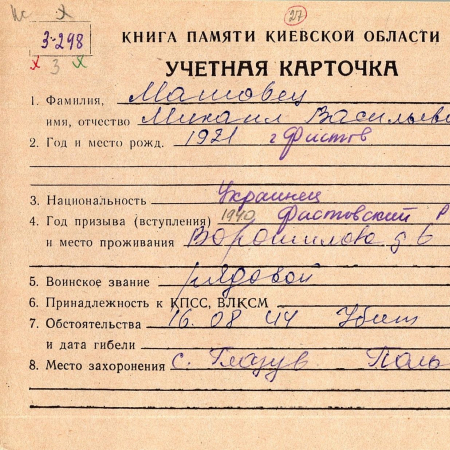 27
3-298
3
КНИГА ПАМЯТИ КИЕВСКОЙ ОБЛАСТИ
УЧЕТНАЯ КАРТОЧКА
1. Фамилия, Матовец
имя, отчество Михаил Васильеви
2. Год и место рожд. 1921 г Фастов
3. Национальность Украинец
4. Год призыва (вступления) 1940 Фастовский Р
и место проживания Ворошилова д 6
5. Воинское звание рядовой
6. Принадлежность к КПСС, ВЛКСМ
7. Обстоятельства 16.08 44 Убит
и дата гибели
8. Место захоронения с. Поль